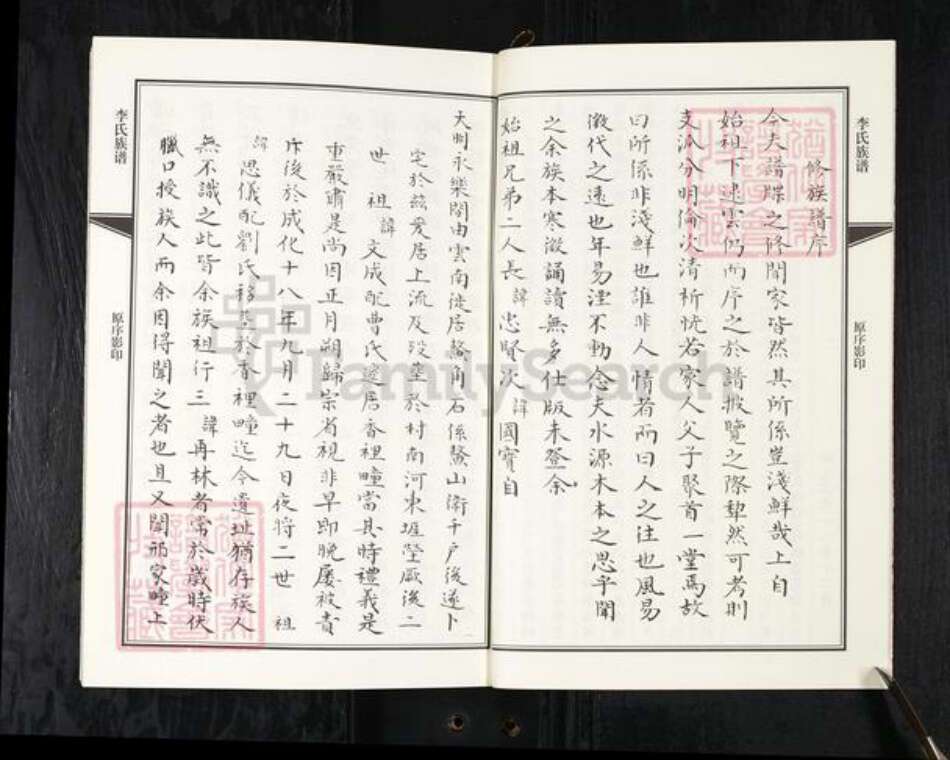 李氏族谱
原序影印
修族譜序
今夫譜牒之修閥家皆然其所係豈淺鮮哉上自
始祖下逮雲仍而序之於譜披覽之際犂然可考則
支派分明倫次清析恍若家人父子聚首一堂焉故
曰所係非淺鮮也誰非人情者而曰人之往也風易
微代之遠也年易湮不動念夫水源木本之思乎聞
之余族本寒微誦讀無多仕版未登余
始祖兄弟二人長諱忠賢次諱國寶自
大明永樂間由雲南徙居鰲角石係鰲山衛千戶後遂卜
宅於兹爰居上流及殁塋於村南河東埠塋厥後二
世祖諱文成配曹氏遂居香裡疃當其時禮義是
重嚴肅是尚因正月朔歸宗省視非早即晚屡被責
斥後於成化十八年九月二十九日夜將二世祖
諱思儀配劉氏移塋於香裡疃迄今遺址猶存族人
無不識之此皆余族祖行三諱再林者常於歲時伏
臘口授族人而余因得聞之者也且又聞祁家疃上
李氏族谱
原序影印
FamilySearch